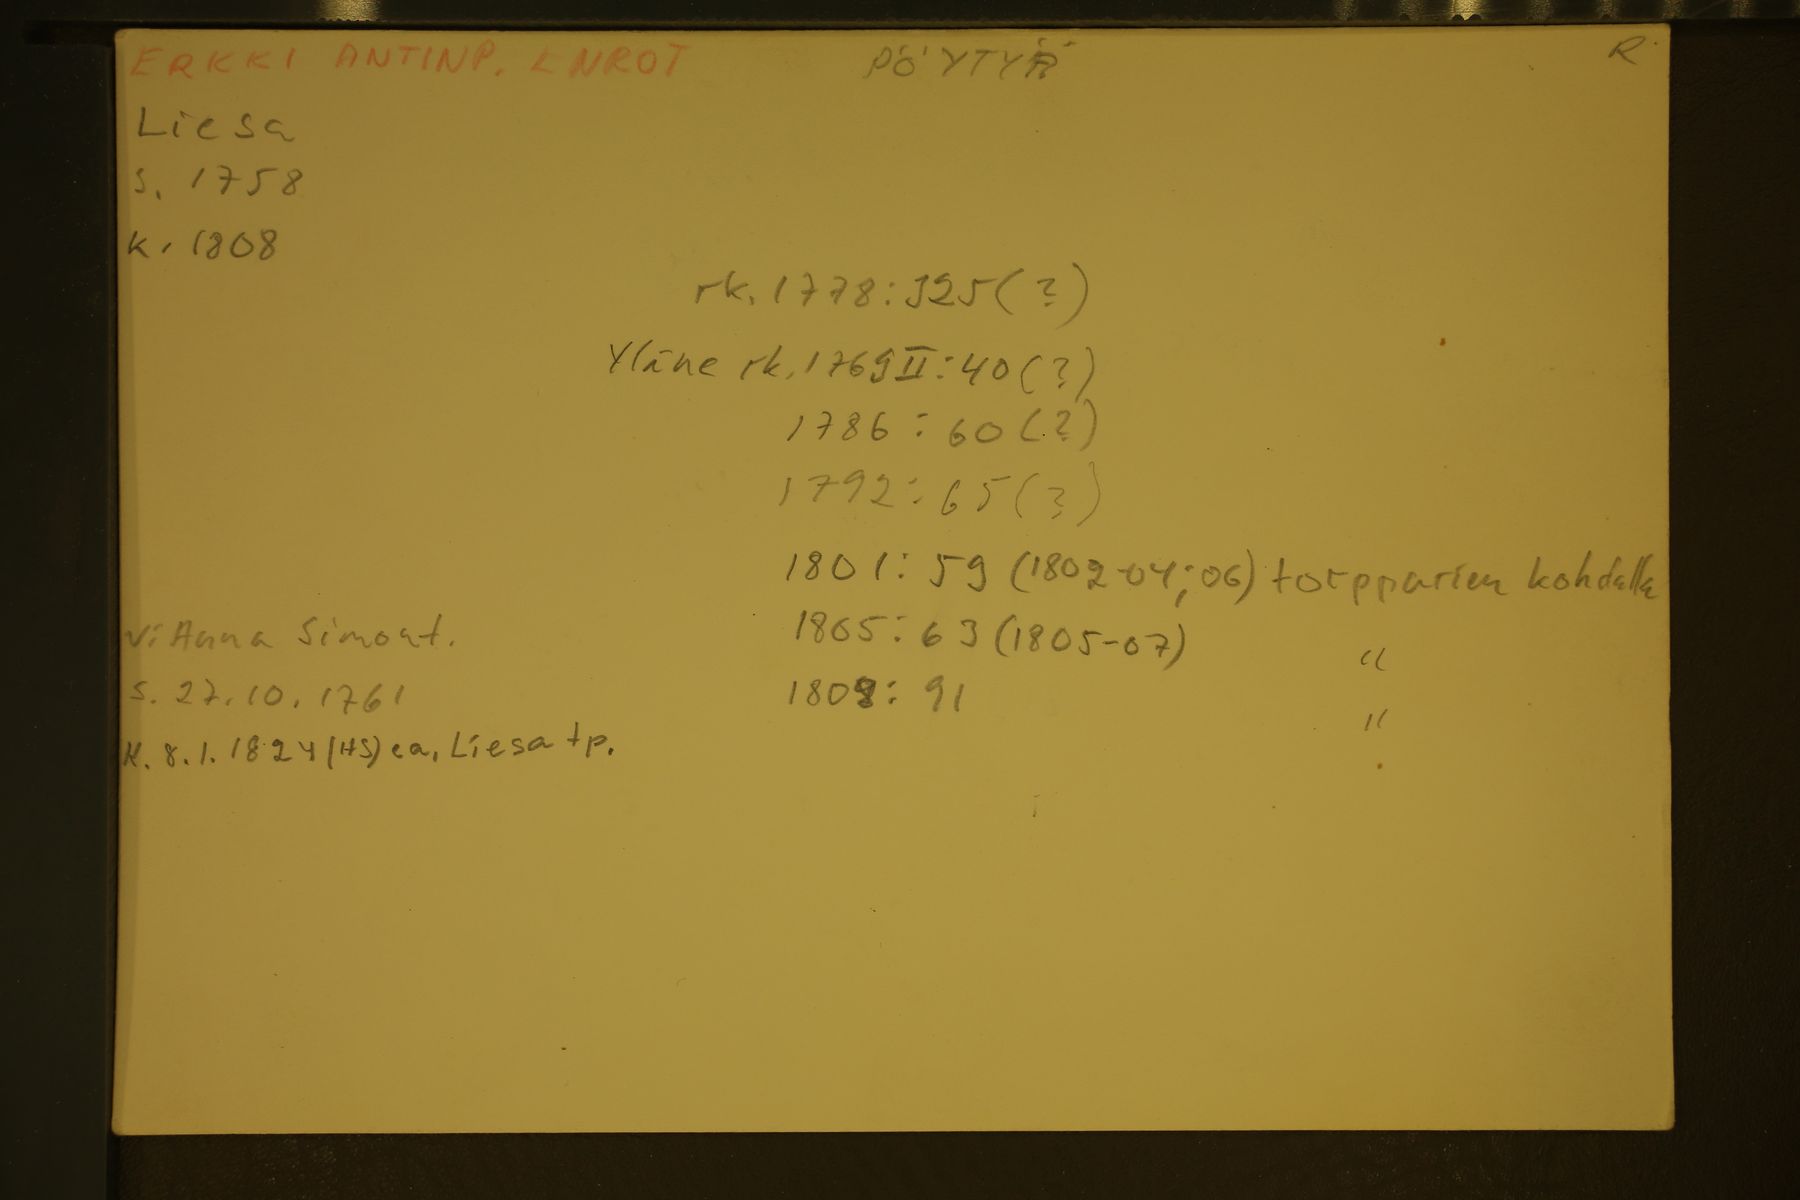 ERKKI ANTINP. ENROT PÖYTYÄ R
Liesa
s. 1758
k. 1808
rk. 1778: 325 (?)
Yläne rk. 1769 II: 40 (?)
1786: 60 (?)
1792: 65 (?)
1801: 59 (1802-04; 06) torpparien kohdalla
v: Anna Simont. 1805: 63 (1805-07) "
s. 27.10.1761 1808: 91 "
K. 8.1.1824 (HS) ea, Liesa tp.